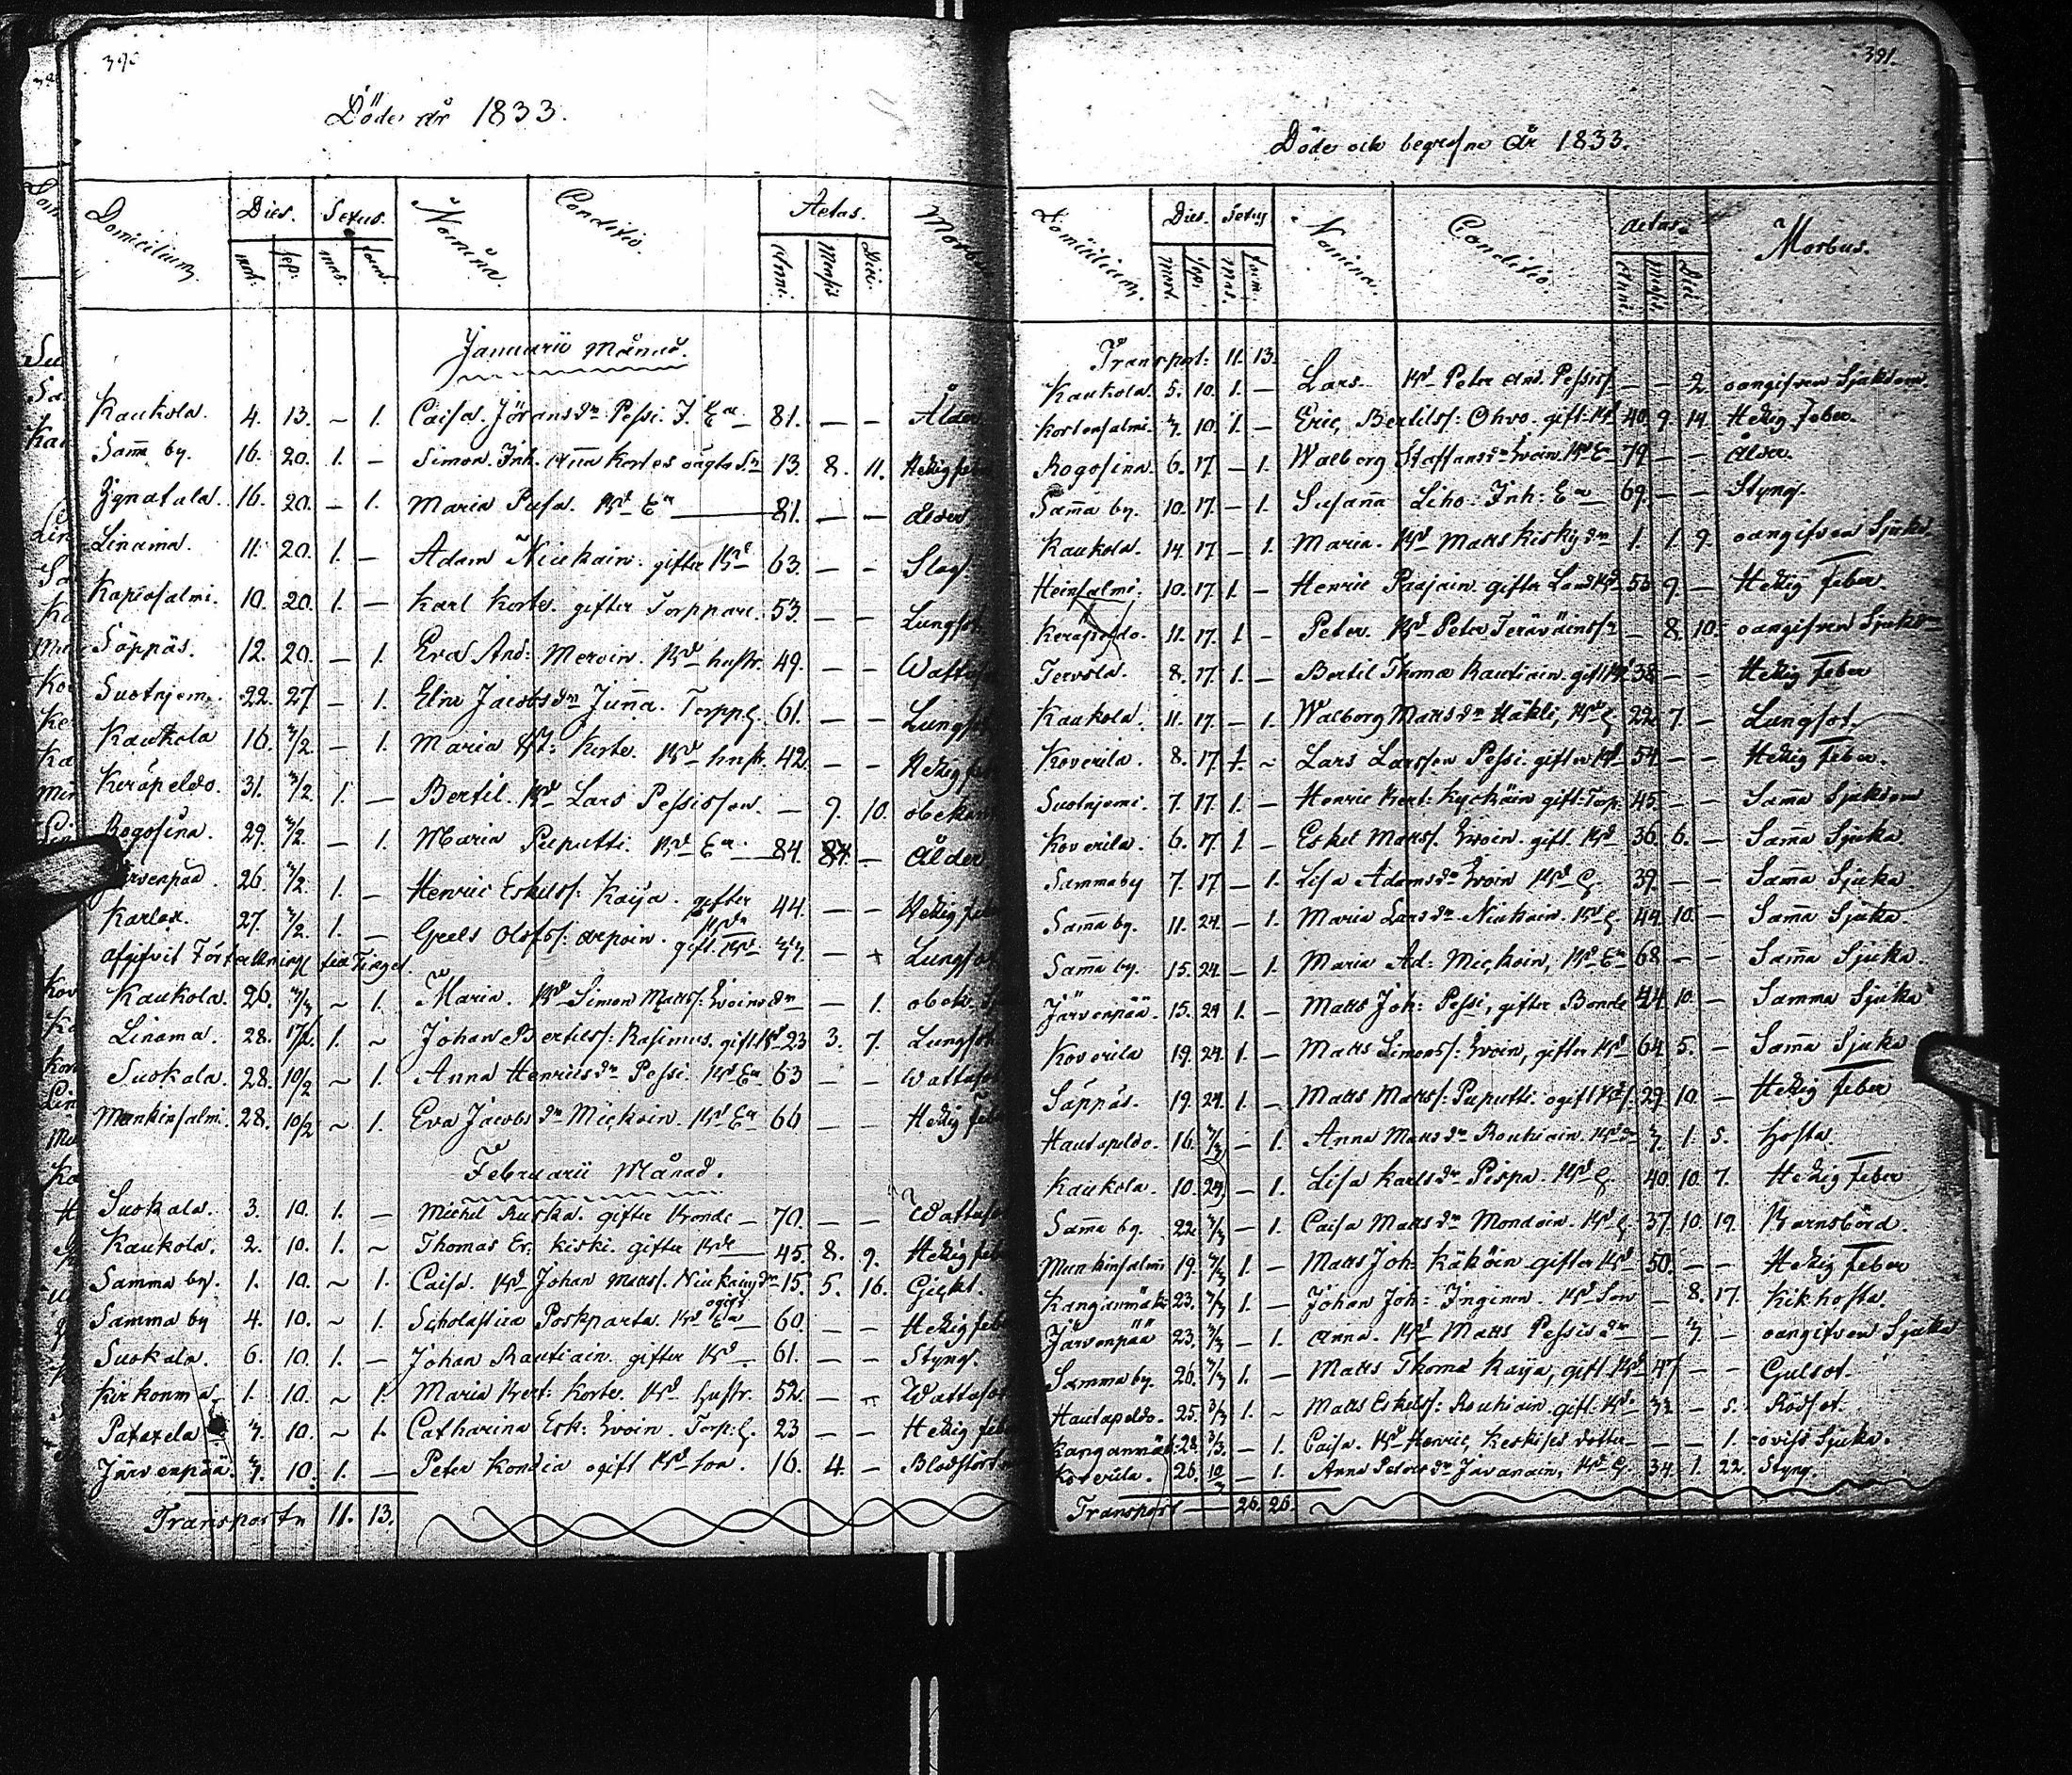 Döde År 1833.
Domicilium. Dies. Sexus. Nomina. Conditio. Aetas. Morb
mort. sep. mas. foem. Anni. Mensis Diei.
Januarii Månad.
Kaukola. 4. 13. ~ 1. Caisa Jöransdr Pessi. J. Ea 81. — — Ålder
Samma by. 16. 20. 1. — Simon. Inh. Korte's oägta Sn 13. 8. 11. Hetzig feb
16. 20. — 1. Maria Pusa. Bd Ea 81. — — Ålder.
Linama. 11. 20. 1. — Adam Niukain. gifter Bd 63. — — Slag.
Kapiasalmi. 10. 20. 1. — Karl Korte. gifter Torppare 53. — — Lungsot
Säppäs. 12. 20. — 1. Eva And: Mervin. Bd hustr. 49. — — Wattus
Suotnjemi 22. 27 — 1. Elin Jacobsdr Junna. Torpp. 61. — — Lungsot
Kaukola 16. 3/2. — 1. Maria Korte. Bd hustr. 42. — — Hetzig feb
Keräpeldo. 31. 3/2. 1. — Bertil. Bd Lars Pessis son — 9. 10. obekan
Rogosina. 29. 3/2. — 1. Maria Puputti. Bd Ea 84. — Ålder
Järvenpää. 26. 3/2. 1. — Henric Eskelss: Kaija. gifter Bd 44. — — Hetzig feb
Karlax. 27. 3/2. 1. — Greels Olofss: Arpoin. gift. Bd. 44. — + Lungsot
afgifvit Förteckning tia Tinget.
Kaukola. 26. ~ 1. Maria. Bd Simon Mattss: Ewoins dr — — 1. obek. Sj
Linama. 28. 17/2. 1. ~ Johan Bertilss: Rasimus. gift Bd 23 3. 7. Lungsot
Suokala. 28. 10/2 ~ 1. Anna Henricsdr Pessi. Bd Ea 63 — — Wattusot
Munkinsalmi. 28. 10/2 ~ 1. Eva Jacobsdr Mickoin. Bd Ea 66 — — Hetzig feb
Februarii Månad.
Suokala. 3. 10. 1. — Michel Ruska. gifter Bonde 70. — — Wattusot
Kaukola. 2. 10. 1. ~ Thomas Er. Kiski. gifter Bd 45. 8. 9. Hetzig feb
Samma by. 1. 10. ~ 1. Caisa. Bd Johan Mattss. Niukains dr 15. 5. 16. Gickt.
Samma by 4. 10. ~ 1. Scholastica Poskparta. ogift Bd Ea 60. — — Hetzig feb
Suokala. 6. 10. 1. — Johan Rautiain. gifter Bd 61. — — Styng.
Kirkonma 1. 10. ~ 1. Maria Bert: Korte. Bd hustr. 52. — — Wattusot
Patatela 7. 10. ~ 1. Catharina Esk: Ewoin. Torp: 23 — — Hetzig feb
Järvenpää. 7. 10. 1. — Peter Kondia ogift Bd Son. 16. 4. — Blodstört
Transport 11. 13.
391.
Döde och begrafne År 1833.
Domicilium. Dies. Sexus Nomina. Conditio. Aetas. Morbus.
mort. sep. mas. foem. Anni Mensis Diei
Transport: 11. 13.
Kaukola. 5. 10. 1. — Lars. Bd Peter And. Pessis s — — 2. oangifven Sjukdom.
Kortensalmi. 7. 10. 1. — Eric Bertilss: Ohvo. gift. Bd 40. 9. 14. Hetzig Feber.
Rogosina. 6. 17 — 1. Walborg Staffansdr Ewoin. Bd E 79 — — Ålder.
Samma by. 10. 17. — 1. Susanna Liho. Inh: Ea 69. — — Styng.
Kaukola. 14. 17 — 1. Maria. Bd Matts Kiskis dr 1. 1. 9. oangifven Sjukd.
Heinsalmi. 10. 17. 1. — Henric Paajain. gifter 9. — Hetzig Feber.
Keräpeldo. 11. 17. 1. — Peter. Bd Peter Teräväins s — 8. 10. oangifven Sjukdom
Tervola. 8. 17. 1. — Bertil Thomæ Rautiain. gift Bd 38 — — Hetzig Feber
Kaukola. 11. 17. — 1. Walborg Mattsdr Häkli, Bd 22. 7. — Lungsot.
Koverila. 8. 17 1. ~ Lars Larsson Pessi. gifter Bd 54. — — Hetzig Feber.
Suotnjemi. 7. 17 1. — Henric Bert: Kyckäin gift: Torp. 45. — — Samma Sjukdom
Koverila. 6. 17. 1. — Eskel Mattss. Ewoin. gift. Bd 36. 6. — Samma Sjuka.
Samma by 7. 17 — 1. Lisa Adamsdr Ewoin Bd 39. — — Samma Sjuka.
Samma by. 11. 24. — 1. Maria Larsdr Niukain. Bd 44. 10. — Samma Sjuka.
Samma by. 15. 24. — 1. Maria Ad: Mickoin, Bd Ea 68 — — Samma Sjuka.
Järvenpää. 15. 24 1. — Matts Joh: Pessi, gifter Bonde 44. 10. — Samma Sjuka
Koverila 19. 24. 1. — Matts Simonss: Ewoin, gifter Bd 64. 5. — Samma Sjuka
Säppäs. 19. 24. 1. — Matts Mattss: Puputti. ogift Bd s. 29 10. — Hetzig Feber
Hautapeldo. 16. — 1. Anna Mattsdr Rouhiain. Bd 7. 1. 5. Hosta
Kaukola. 10. 24. — 1. Lisa Karlsdr Pispa. Bd 40. 10. 7. Hetzig Feber
Samma by. 22 — 1. Caisa Mattsdr Mondoin. Bd 37. 10. 19. Barnsbörd.
Munkinsalmi 19. 1. — Matts Joh: Käköin gifter Bd 50. — — Hetzig Feber
Kangasmäki 23. 1. — Johan Joh: Inginen. Bd Son — 8. 17. Kikhosta.
Järvenpää 23. — 1. Anna. Bd Matts Pessis dr — — oangifven Sjuka
Samma by. 26. 1. — Matts Thoma Kaija, gift. Bd 47 — — Gulsot.
Hautapeldo. 25. 3/3. 1. ~ Matts Eskelss: Rouhiain. gift. Bd — 5. Rödsot.
28. 3/3. — 1. Caisa. Bd Henric Keskises dotter — — 1. oviss Sjuka.
Koverila. 26. 10/3 — 1. Anna Petersdr Javanain, Bd 34. 1. 22. Styng.
Transport — 26. 26.